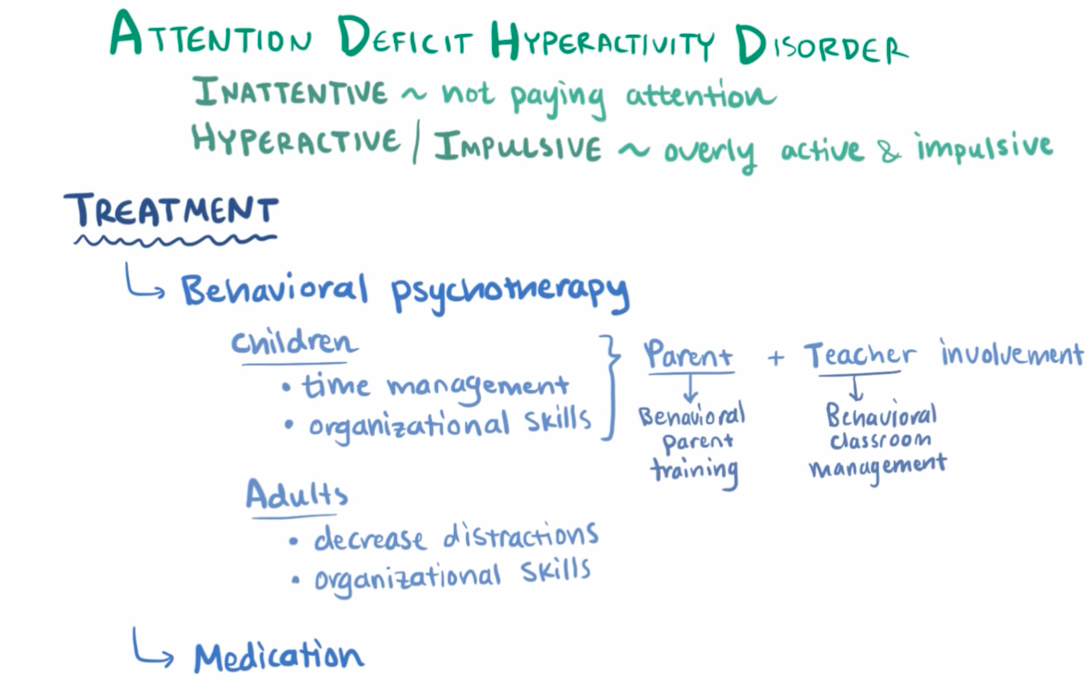 ATTENTION DEFICIT HYPERACTIVITY DISORDER
INATTENTIVE ~ not paying attention
HYPERACTIVE / IMPULSIVE ~ overly active & impulsive
TREATMENT
↳ Behavioral psychotherapy
Children
• time management
• organizational skills
Parent + Teacher involvement
Behavioral
parent
training
Behavioral
classroom
management
Adults
• decrease distractions
• organizational skills
↳ Medication